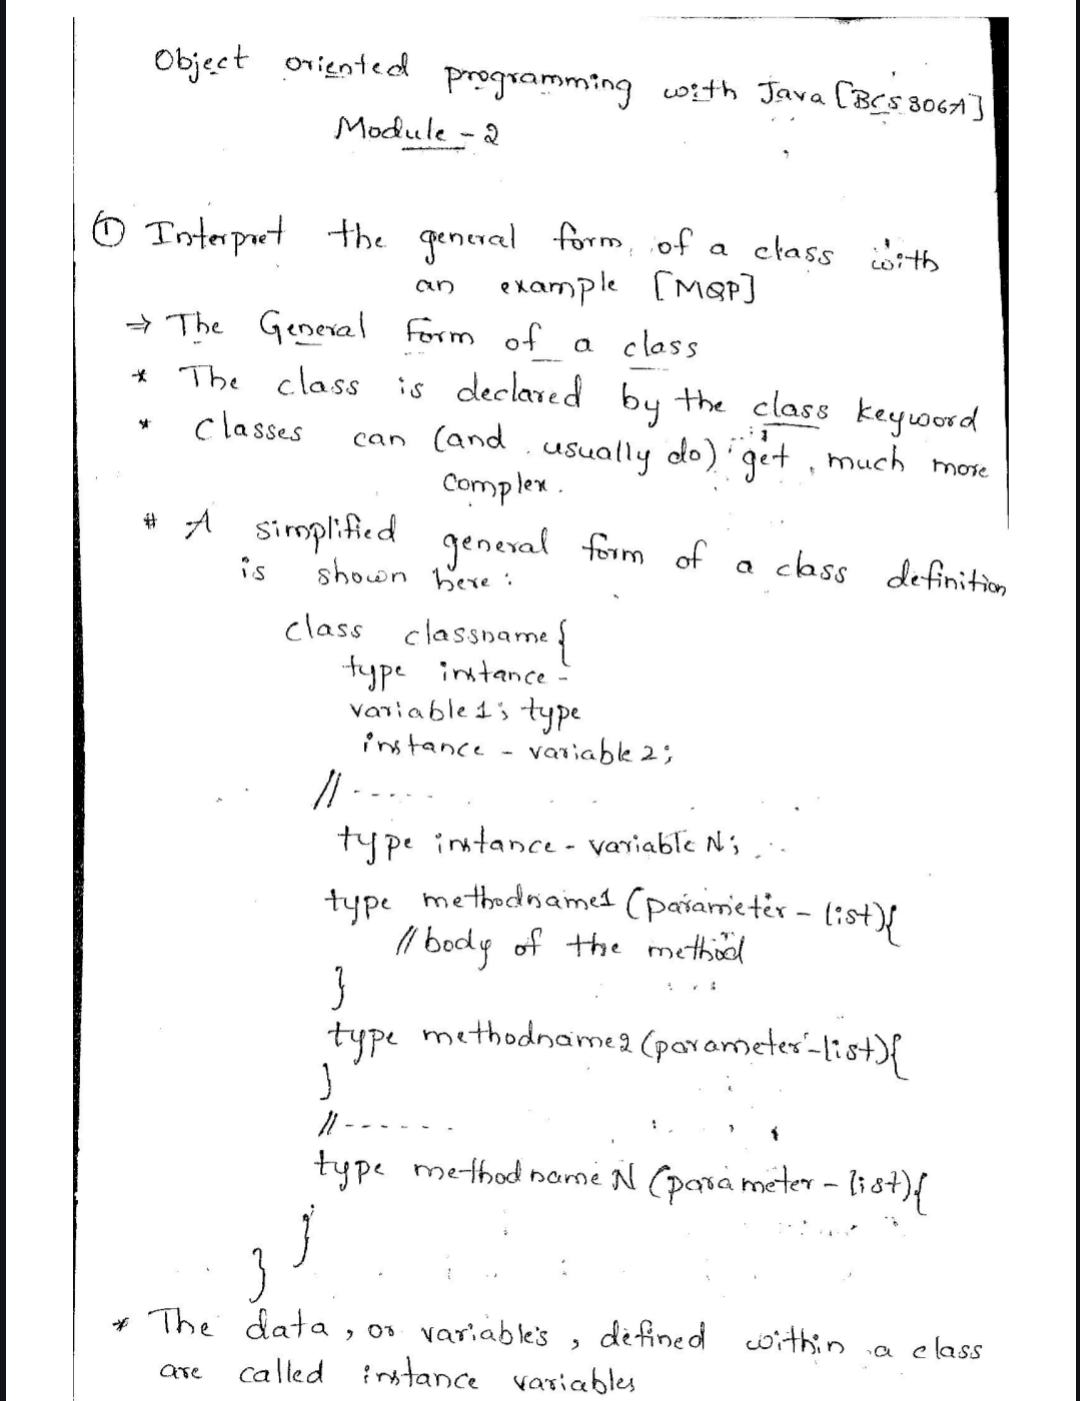 Object oriented programming with Java [BCS306A]
Module - 2
① Interpret the general form of a class with
an example [MQP]
⇒ The General form of a class
* The class is declared by the class keyword
* Classes can (and usually do) get, much more
Complex.
# A simplified general form of a class definition
is shown here :
class classname {
type instance -
variable 1; type
instance - variable 2;
// - - - - -
type instance - variable N;
type methodname1 (parameter - list){
// body of the method
}
type methodname2 (parameter - list){
}
// - - - - - -
type methodname N (parameter - list){
}
}
* The data, or variables, defined within a class
are called instance variables